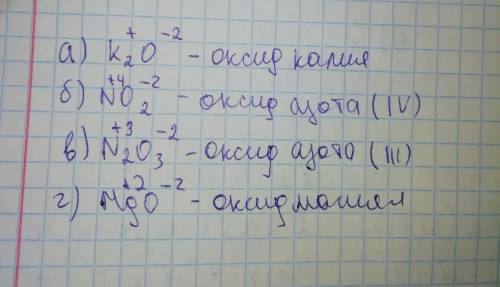 а) K₂⁺O⁻² - оксид калия
б) N⁺⁴O₂⁻² - оксид азота (IV)
в) N₂⁺³O₃⁻² - оксид азота (III)
г) Mg⁺²O⁻² - оксид магния